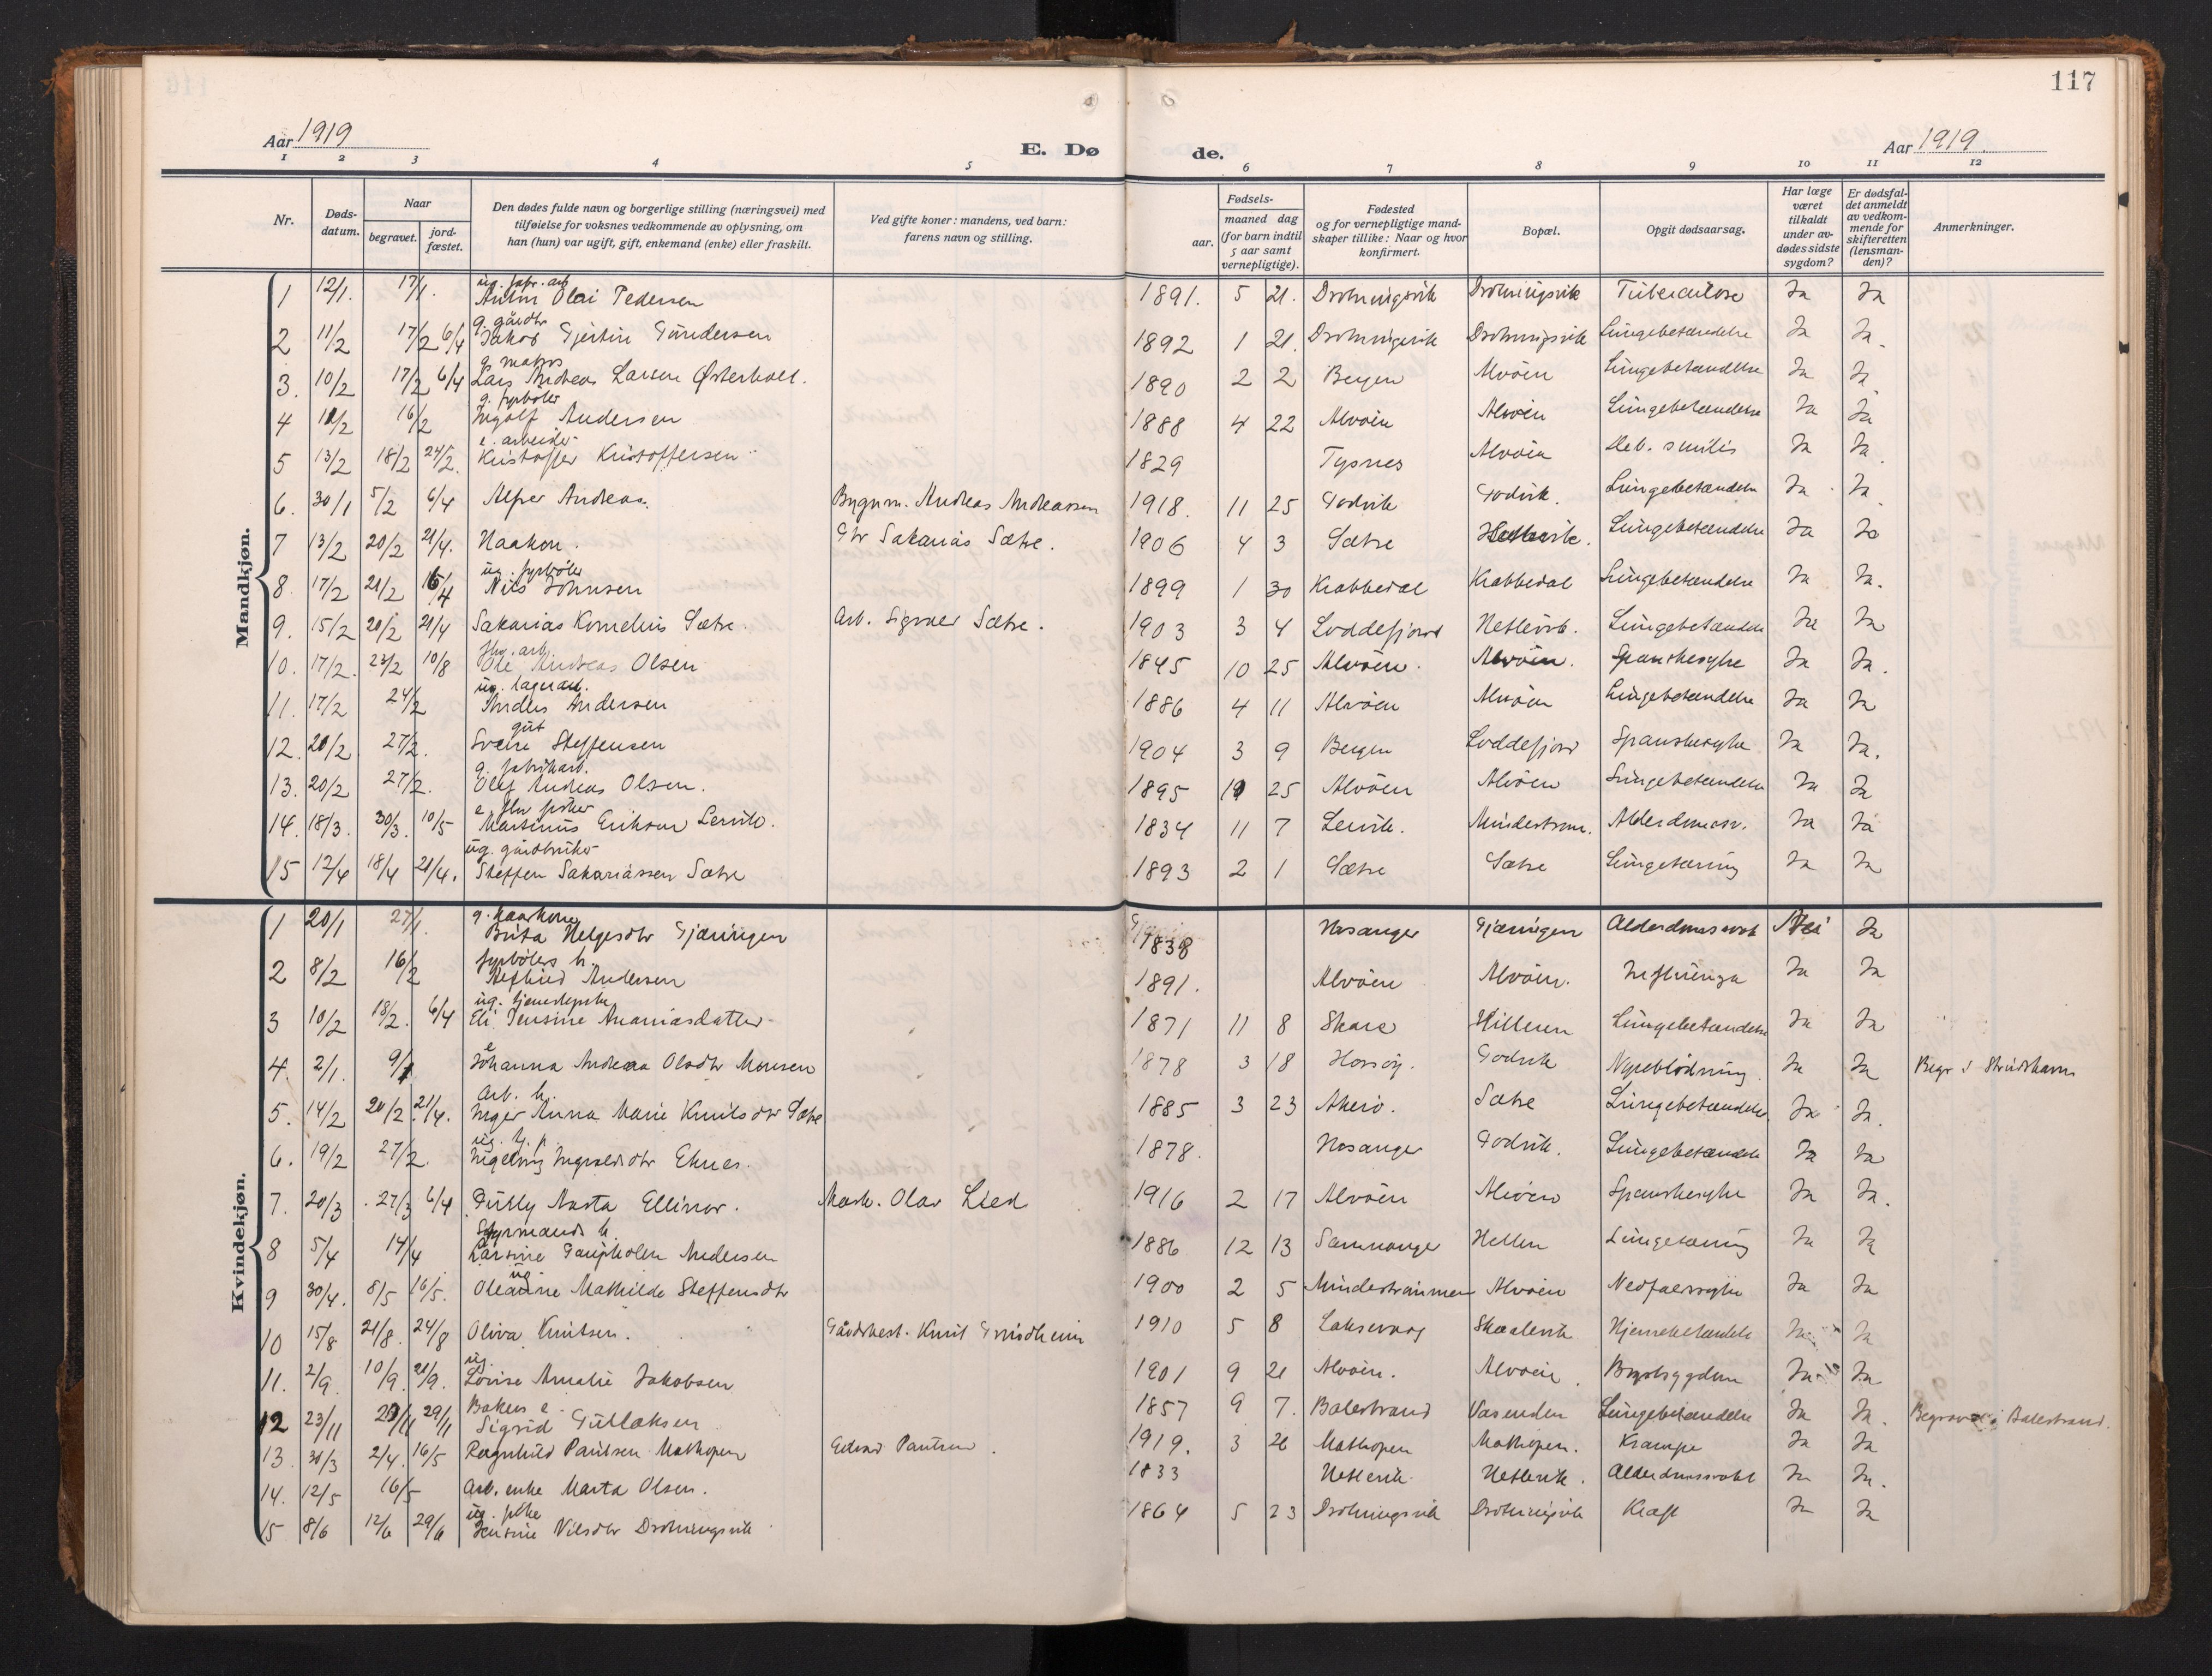 117
Aar 1919
E. Dø
de.
Aar 1919.
1 2 3 4 5 6 7 8 9 10 11 12
Nr.
Døds-
datum.
Naar
begravet.
jord-
fæstet.
Den dødes fulde navn og borgerlige stilling (næringsvei) med
tilføielse for voksnes vedkommende av oplysning, om
han (hun) var ugift, gift, enkemand (enke) eller fraskilt.
Ved gifte koner: mandens, ved barn:
farens navn og stilling.
Fødsels-
aar.
maaned dag
(for barn indtil
5 aar samt
vernepligtige).
Fødested
og for vernepligtige mand-
skaper tillike: Naar og hvor
konfirmert.
Bopæl.
Opgit dødsaarsag.
Har læge
været
tilkaldt
under av-
dødes sidste
sygdom?
Er dødsfal-
det anmeldt
av vedkom-
mende for
skifteretten
(lensman-
den)?
Anmerkninger.
Mandkjøn.
ug. fabr. arb
1 12/1. 17/1. Anton Olai Pedersen 1891. 5 21. Drotningsvik Drotningsvik Tuberculose Ja Ja
g. gårdbr
2 11/2 17/2 6/4 Jakob Gjertin Gundersen 1892 1 21. Drotningsvik Drotningsvik Lungebetændelse Ja Ja.
g. matros
3. 10/2 17/2 6/4 Lars Andreas Larsen Østerholt. 1890 2 2 Bergen Alvøen Lungebetændelse Ja Ja
g. fyrbøter
4 12/2 16/2 Ingolf Andersen 1888 4 22 Alvøen Alvøen Lungebetændelse Ja Ja
e. arbeider
5 13/2 18/2 24/2. Kristoffer Kristoffersen 1829 Tysnes Alvøen Deb. senilis Ja Ja.
6. 30/1 5/2 6/4 Alfser Andreas. Bygnm. Andreas Andreassen 1918. 11 25 Godvik Godvik. Lungebetændelse Ja Ja
7 13/2 20/2 21/4. Haakon. Gbr Sakarias Sætre. 1906 4 3 Sætre Hetlevik. Lungebetændelse Ja Ja
ug. fyrbøter
8. 17/2 21/2 15/4 Nils Johnsen 1899 1 30 Krabbedal Krabbedal Lungebetændelse Ja Ja.
9. 15/2 20/2 21/4 Sakarias Kornelius Sætre. Arb. Signaer Sætre. 1903 3 4 Loddefjord Hetlevik. Lungebetændelse Ja Ja
fhv. arb.
10. 17/2. 23/2 10/8 Ole Andreas Olsen 1845 10 25 Alvøen. Alvøen. Spanskesyke Ja Ja.
ug. lagerarb.
11. 17/2 24/2 Anders Andersen 1886 4 11 Alvøen Alvøen Lungebetændelse Ja Ja
gut
12. 20/2 27/2. Sverre Steffensen 1904 3 9 Bergen Loddefjord Spanskesyke Ja Ja.
g. fabrikarb.
13. 20/2 27/2. Olef Andreas Olsen. 1895 25 Alvøen Alvøen Lungebetændelse Ja Ja
e. fhv fisker
14. 18/3. 30/3. 10/5 Martinus Eriksen Lervik. 1834 11 7 Lervik. Mindestrøm. Alderdomssv. Ja Ja
ug. gårdbruker
15 12/4 18/4 21/4. Steffen Sakariassen Sætre 1893 2 1 Sætre Sætre Lungetæring Ja Ja
Kvindekjøn.
g. kaarkone
1 20/1 27/1. Brita Helgesdtr Gjæringen 1838 Hosanger Gjæringen Alderdomssvak Nei Ja
fyrbøters h.
2 8/2 16/2 Andersen 1891. Alvøen Alvøen. Influenza Ja Ja
ug. tjenestepike
3 10/2 18/2. 6/4 Eli Jensine Ananiasdatter 1871 11 8 Skare Hilleren Lungebetændelse Ja Ja
e
4. 2/1. 9/1 Johanna Andrea Olsdtr Monsen 1878 3 18 Horsøy. Godvik Nyreblødning. Ja Ja Begr i Strudshavn
Arb. h.
5. 14/2 20/2. 21/4. Inger Anna Marie Knutsdtr Sætre 1885 3 23 Askerø. Sætre Lungebetændelse. Ja Ja.
ug. t. p.
6. 19/2 27/2. Ingeborg Ingvaldsdtr Eknes. 1878. Hosanger Godvik. Lungebetændelse Ja Ja
7. 20/3 27/3 6/4 Dully Aasta Ellinor. Mask. Olav Lied 1916 2 17 Alvøen Alvøen Spanskesyke Ja Ja.
Styrmands h.
8 5/4 14/4 Larsine Gaupholm Andersen 1886 12 13 Samnanger Hetlen Lungetæring Ja Ja
ug.
9 30/4. 8/5 16/5. Oleanne Mathilde Steffensdtr 1900 2 5 Mindestrømmen Alvøen Nedfaldssyke Ja Ja
10 15/8 21/8. 24/8 Oliva Knutsen. Gårdsbest. Knut Grindheim 1910 5 8 Laksevaag Skaalevik Hjernebetændelse Ja Ja
ug.
11. 2/9. 10/9. 21/9. Lovise Amalie Jakobsen 1901 9 21 Alvøen. Alvøen. Brystsygdom Ja Ja
Bakers e.
12 23/11 29/11 29/11 Sigrid Gullaksen 1857 9 7. Balestrand Vasenden Lungebetændelse Ja Ja. Begravet i Balestrand.
13. 30/3 2/4. 16/5 Ragnhild Paulsen Mathopen Edvard Paulsen. 1919. 3 26 Mathopen Mathopen. Krampe Ja Ja
14. 12/5 16/5 Arb. enke Marta Olsen. 1833 Hetlevik Hetlevik. Alderdomssvakt Ja Ja.
ug. pike
15 8/6 12/6 29/6 Jensine Nilsdtr Drotningsvik 1864 5 23 Drotningsvik Drotningsvik Kræft Ja Ja